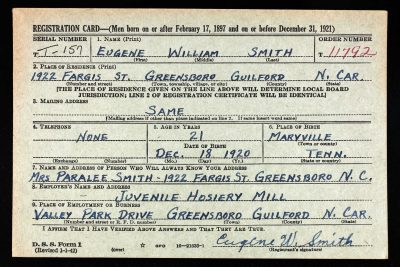 REGISTRATION CARD—(Men born on or after February 17, 1897 and on or before December 31, 1921)
SERIAL NUMBER 1. NAME (Print) ORDER NUMBER
T-157 EUGENE WILLIAM SMITH 11792
(First) (Middle) (Last)
2. PLACE OF RESIDENCE (Print)
1922 FARGIS ST. GREENSBORO GUILFORD N. CAR.
(Number and street) (Town, township, village, or city) (County) (State)
[THE PLACE OF RESIDENCE GIVEN ON THE LINE ABOVE WILL DETERMINE LOCAL BOARD
JURISDICTION; LINE 2 OF REGISTRATION CERTIFICATE WILL BE IDENTICAL]
3. MAILING ADDRESS
SAME
[Mailing address if other than place indicated on line 2. If same insert word same]
4. TELEPHONE 5. AGE IN YEARS 6. PLACE OF BIRTH
NONE 21 MARYVILLE
DATE OF BIRTH (Town or county)
DEC. 18 1920 TENN.
(Exchange) (Number) (Mo.) (Day) (Yr.) (State or country)
7. NAME AND ADDRESS OF PERSON WHO WILL ALWAYS KNOW YOUR ADDRESS
MRS PARALEE SMITH - 1922 FARGIS ST. GREENSBORO N.C.
8. EMPLOYER'S NAME AND ADDRESS
JUVENILE HOSIERY MILL
9. PLACE OF EMPLOYMENT OR BUSINESS
VALLEY PARK DRIVE GREENSBORO GUILFORD N. CAR.
(Number and street or R. F. D. number) (Town) (County) (State)
I AFFIRM THAT I HAVE VERIFIED ABOVE ANSWERS AND THAT THEY ARE TRUE.
D. S. S. Form 1 Eugene W. Smith
(Revised 1-1-42) (over) GPO 16-21630-1 (Registrant's signature)